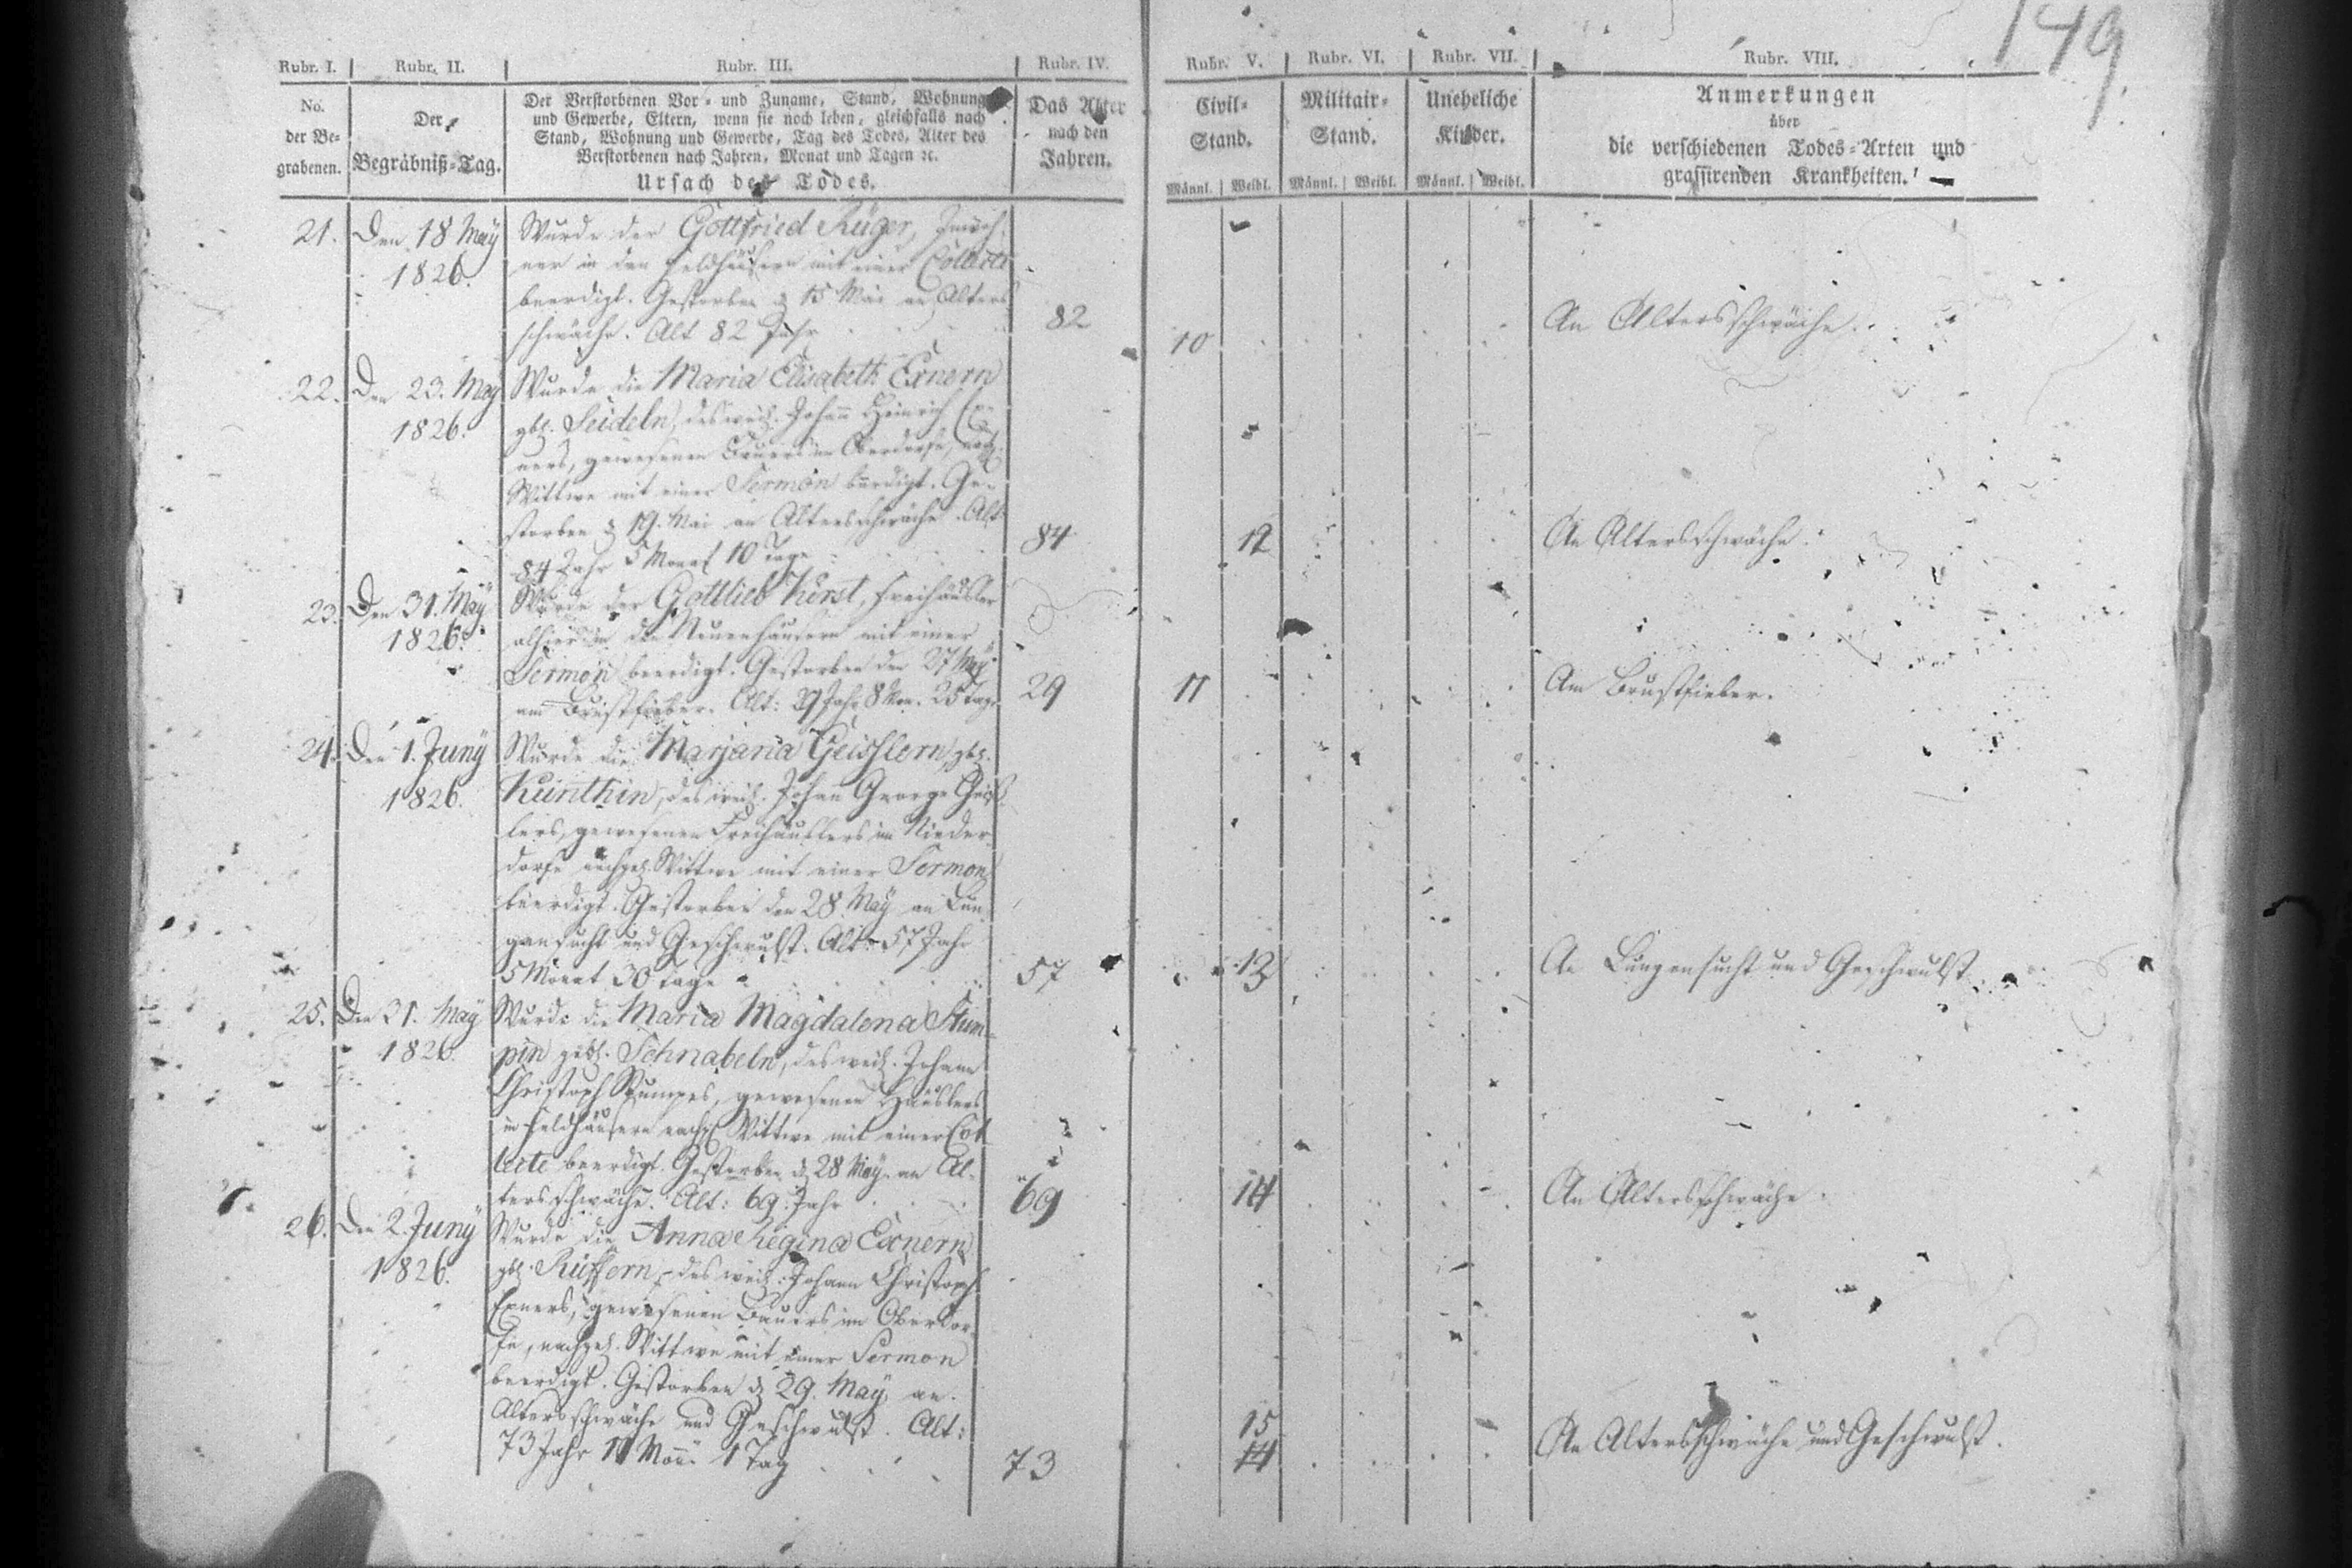 149.
Rubr. I. Rubr. II. Rubr. III. Rubr. IV. Rubr. V. Rubr. VI. Rubr. VII. Rubr. VIII.
No.
der Be-
grabenen.
Der
Begräbniß-Tag.
Der Verstorbenen Vor- und Zuname, Stand, Wohnung
und Gewerbe, Eltern, wenn sie noch leben, gleichfalls nach
Stand, Wohnung und Gewerbe, Tag des Todes, Alter des
Verstorbenen nach Jahren, Monat und Tagen ꝛc.
Ursach des Todes.
Das Alter
nach den
Jahren.
Civil-
Stand.
Männl. Weibl.
Militair-
Stand.
Männl. Weibl.
Uneheliche
Kinder.
Männl. Weibl.
Anmerkungen
über
die verschiedenen Todes-Arten und
grassirenden Krankheiten.
21. Den 18 May
1826.
Wurde der Gottfried Rüger, Inwoh-
ner in den Feldhäusern mit einer Collecte
beerdigt. Gestorben d 15 Mai an Alters
schwäche. Alt 82 Jahr
82
10
An Altersschwäche.
22. Den 23. May
1826.
Wurde die Maria Elisabeth Exnern
gbh. Seideln, des weil. Johann Heinrich Ex-
ners, gewesenen Bauers im Oberdorfe, nachg.
Wittwe mit einer Sermon beerdigt. Ge-
storben d 19. Mai an Altersschwäche. Alt
84 Jahr 5 Monat 10 Tage
84
12
An Altersschwäche.
23. Den 31. May
1826.
Wurde der Gottlieb Kürst, Freihäusler
alhier in den Neuenhäusern mit einer
Sermon beerdigt. Gestorben den 27 May
am Brustfieber. Alt: 29 Jahr 8 Mon. 25 Tage
29
11
Am Brustfieber.
24. Den 1. Juny
1826.
Wurde die Marjana Geisslern, gbh.
Künthin, des weil. Johann George Geiss-
lers, gewesenen Freihäuslers im Nieder-
dorfe nachgel. Wittwe mit einer Sermon
beerdigt. Gestorben den 28 May an Lun-
gensucht und Geschwulst. Alt: 57 Jahr
5 Monat 30 Tage
57
13
An Lungensucht und Geschwulst.
25. Den 31. May
1826.
Wurde die Maria Magdalena Stum-
pin gebh. Schnabeln, des weil. Johann
Christoph Stumpes, gewesenen Häuslers
in Feldhäusern nachgl Wittwe mit einer Col-
lecte beerdigt. Gestorben d 28 May an Al-
tersschwäche. Alt: 69 Jahr
69
14
An Altersschwäche.
26. Den 2. Juny
1826.
Wurde die Anna Regina Exnern
gbh. Rüffern, des weil. Johann Christoph
Exners, gewesenen Bauers im Oberdor-
fe, nachgel. Wittwe mit einer Sermon
beerdigt. Gestorben d 29. May an
Altersschwäche und Geschwulst. Alt:
73 Jahr 11 Mon. 1 Tag
73
15
14
An Altersschwäche und Geschwulst.